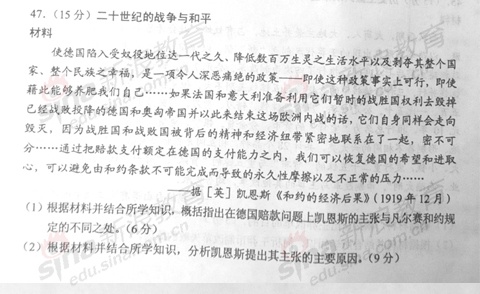 47.（15分）二十世纪的战争与和平
材料
使德国陷入受奴役地位达一代之久、降低数百万生灵之生活水平以及剥夺其整个国
家、整个民族之幸福，是一项令人深恶痛绝的政策——即使这种政策事实上可行，即使
藉此能够养肥我们自己……如果法国和意大利准备利用它们暂时的战胜国权利去毁掉
已经战败投降的德国和奥匈帝国并以此来结束这场欧洲内战的话，它们自身同样会走向
毁灭，因为战胜国和战败国被背后的精神和经济纽带紧密地联系在了一起，密不可
分……通过把赔款支付额定在德国的支付能力之内，我们可以恢复德国的希望和进取
心，可以避免由和约条款不可能完成而导致的永久性摩擦以及不正常的压力……
——据［英］凯恩斯《和约的经济后果》（1919年12月）
（1）根据材料并结合所学知识，概括指出在德国赔款问题上凯恩斯的主张与凡尔赛和约规
定的不同之处。（6分）
（2）根据材料并结合所学知识，分析凯恩斯提出其主张的主要原因。（9分）
sina 新浪教育
edu.sina.com.cn